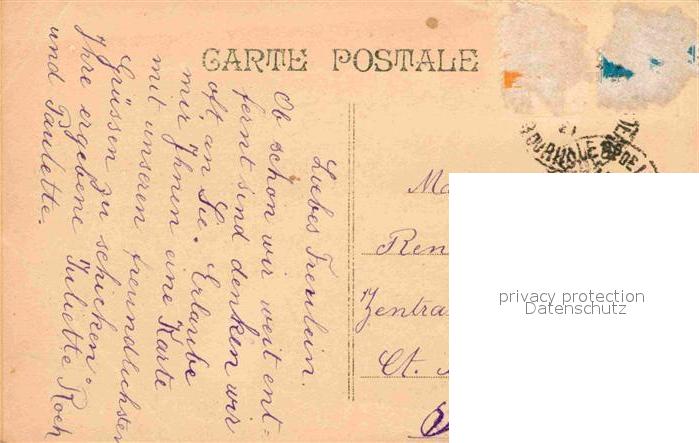 CARTE POSTALE
Liebes Freulein.
Ob schon wir weit ent=
fernt sind denken wir
oft an Sie. Erlaube
mir Ihnen eine Karte
mit unseren freundlichsten
Grüssen zu schicken.
Ihre ergebene Juliette Roch
und Paulette.
Zentra
Ct.
privacy protection
Datenschutz